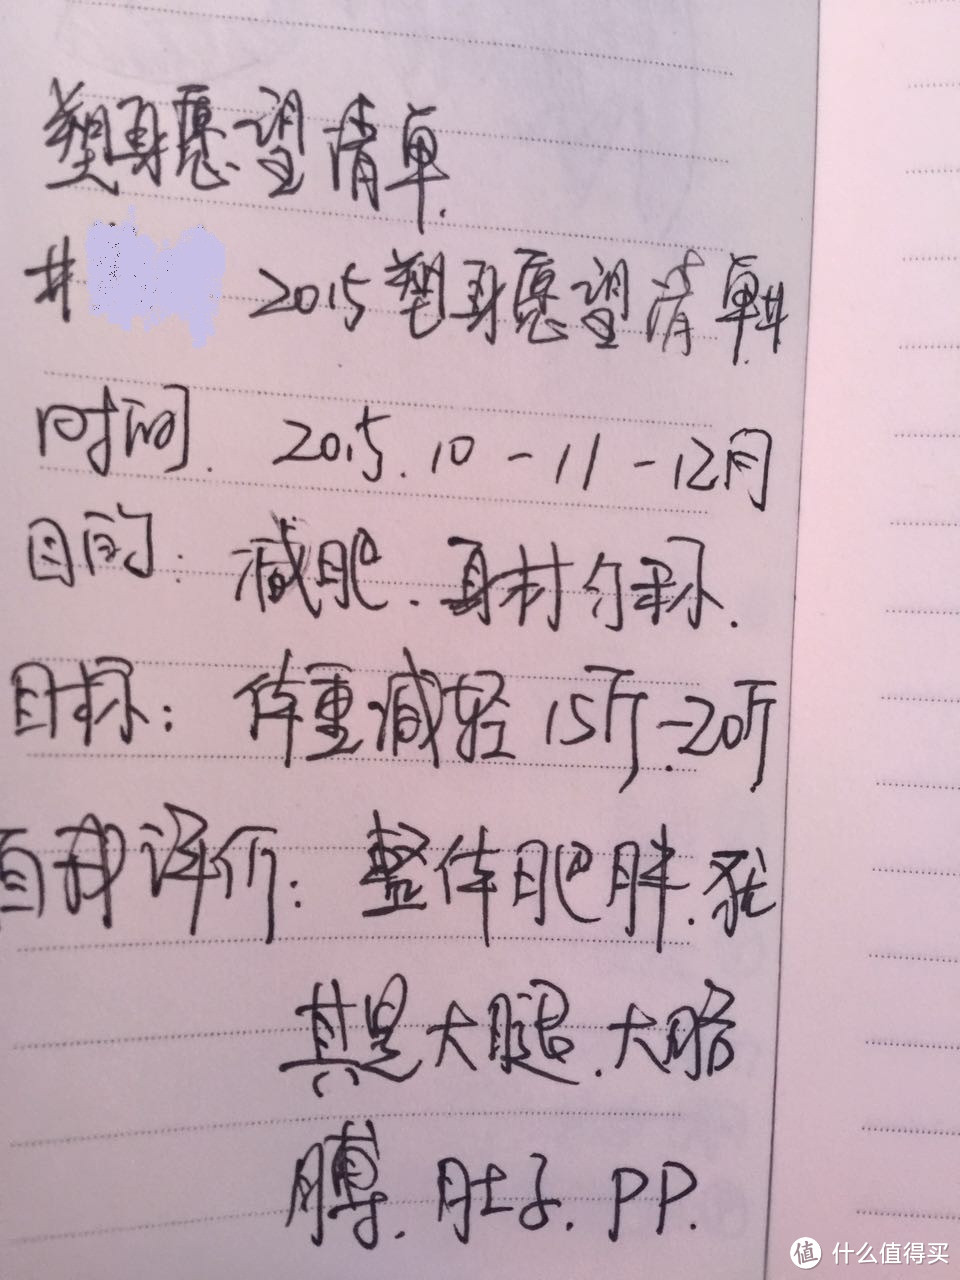 塑身愿望清单.
# 2015塑身愿望清单#
时间. 2015.10-11-12月
目的: 减肥.身材匀称.
目标: 体重减轻15斤-20斤
自我评价: 整体肥胖.尤
其是大腿.大胳
膊.肚子.PP.
值 什么值得买